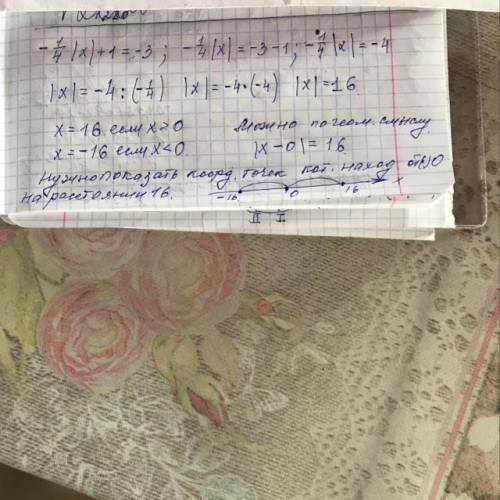 -1/4 |x| + 1 = -3 ; -1/4 |x| = -3 - 1 ; -1/4 |x| = -4
|x| = -4 : (-1/4) |x| = -4 · (-4) |x| = 16
x = 16 если x ≥ 0 Можно по геом. смыслу
x = -16 если x < 0. |x - 0| = 16
Нужно показать коорд. точек кот. наход. от 0
на расстоянии 16. -16 0 16 x
II I